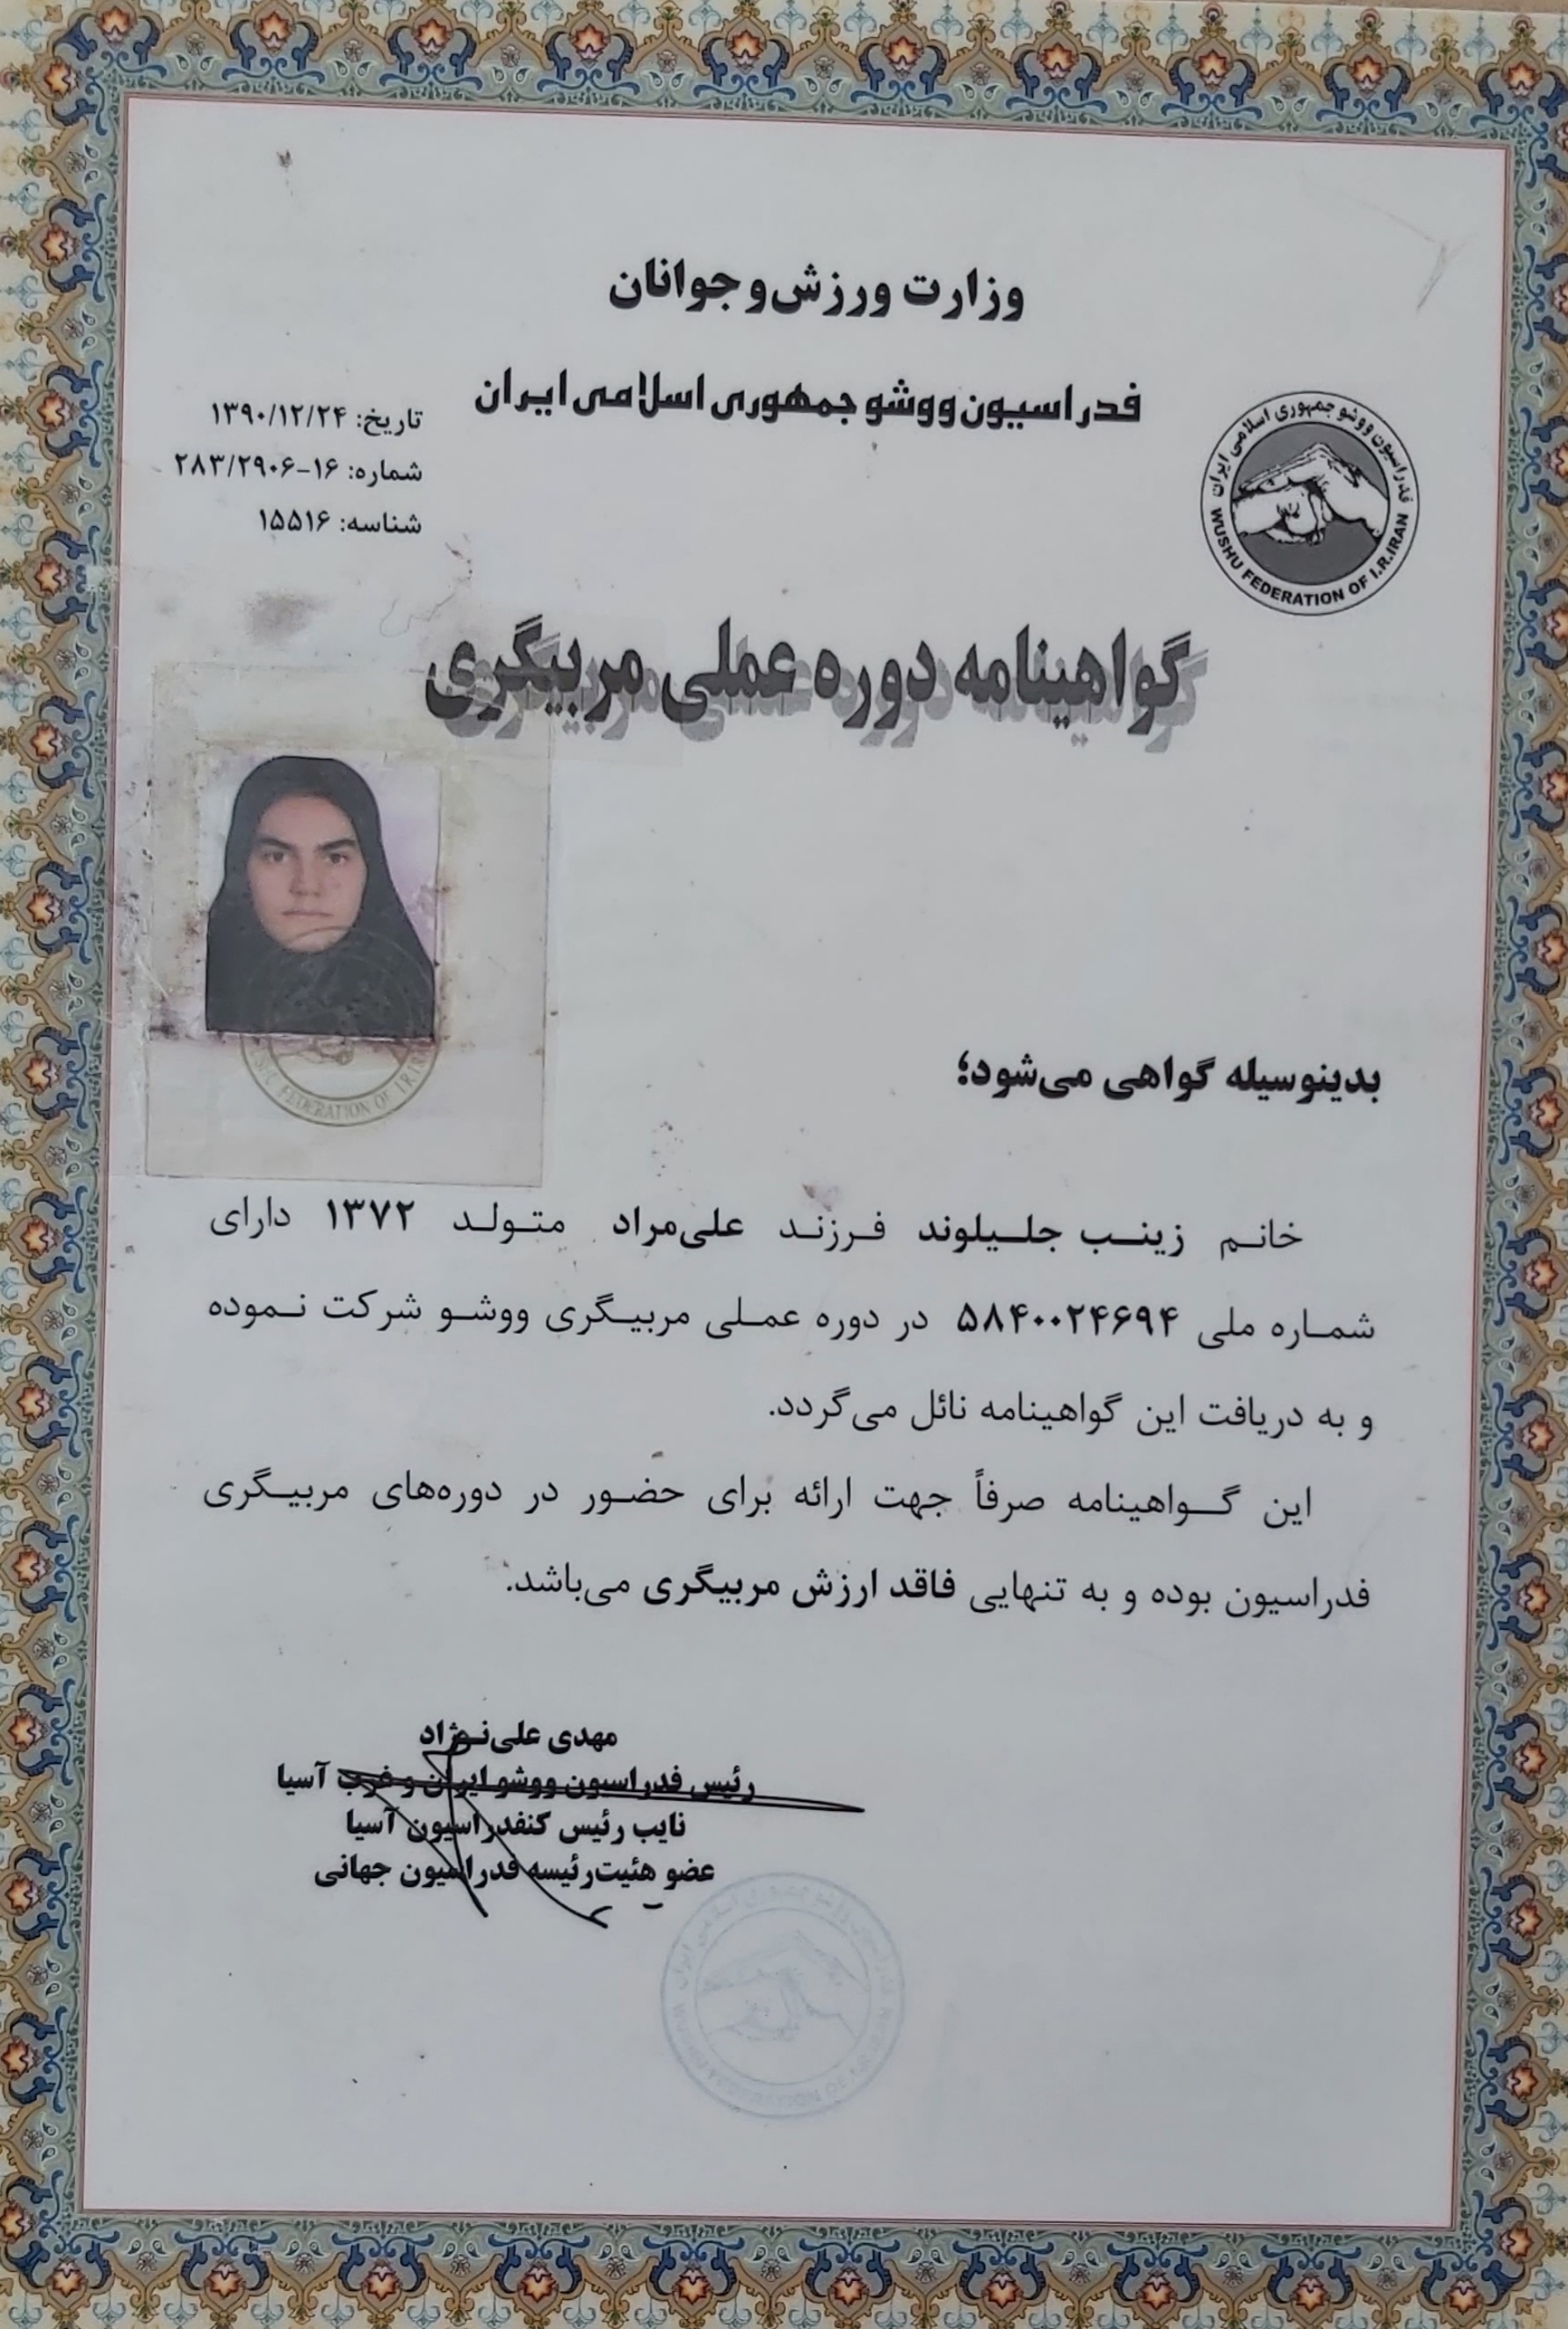 وزارت ورزش و جوانان
فدراسیون ووشو جمهوری اسلامی ایران
تاریخ: ۱۳۹۰/۱۲/۲۴
شماره: ۱۶-۲۸۳/۲۹۰۶
شناسه: ۱۵۵۱۶
فدراسیون ووشو جمهوری اسلامی ایران
WUSHU FEDERATION OF I.R.IRAN
گواهینامه دوره عملی مربیگری
FEDERATION OF I.R.IRAN
بدینوسیله گواهی می‌شود؛
خانم زینب جلیلوند فرزند علی‌مراد متولد ۱۳۷۲ دارای
شماره ملی ۵۸۴۰۰۲۴۶۹۴ در دوره عملی مربیگری ووشو شرکت نموده
و به دریافت این گواهینامه نائل می‌گردد.
این گواهینامه صرفاً جهت ارائه برای حضور در دوره‌های مربیگری
فدراسیون بوده و به تنهایی فاقد ارزش مربیگری می‌باشد.
مهدی علی‌نژاد
رئیس فدراسیون ووشو ایران و غرب آسیا
نایب رئیس کنفدراسیون آسیا
عضو هئیت‌رئیسه فدراسیون جهانی